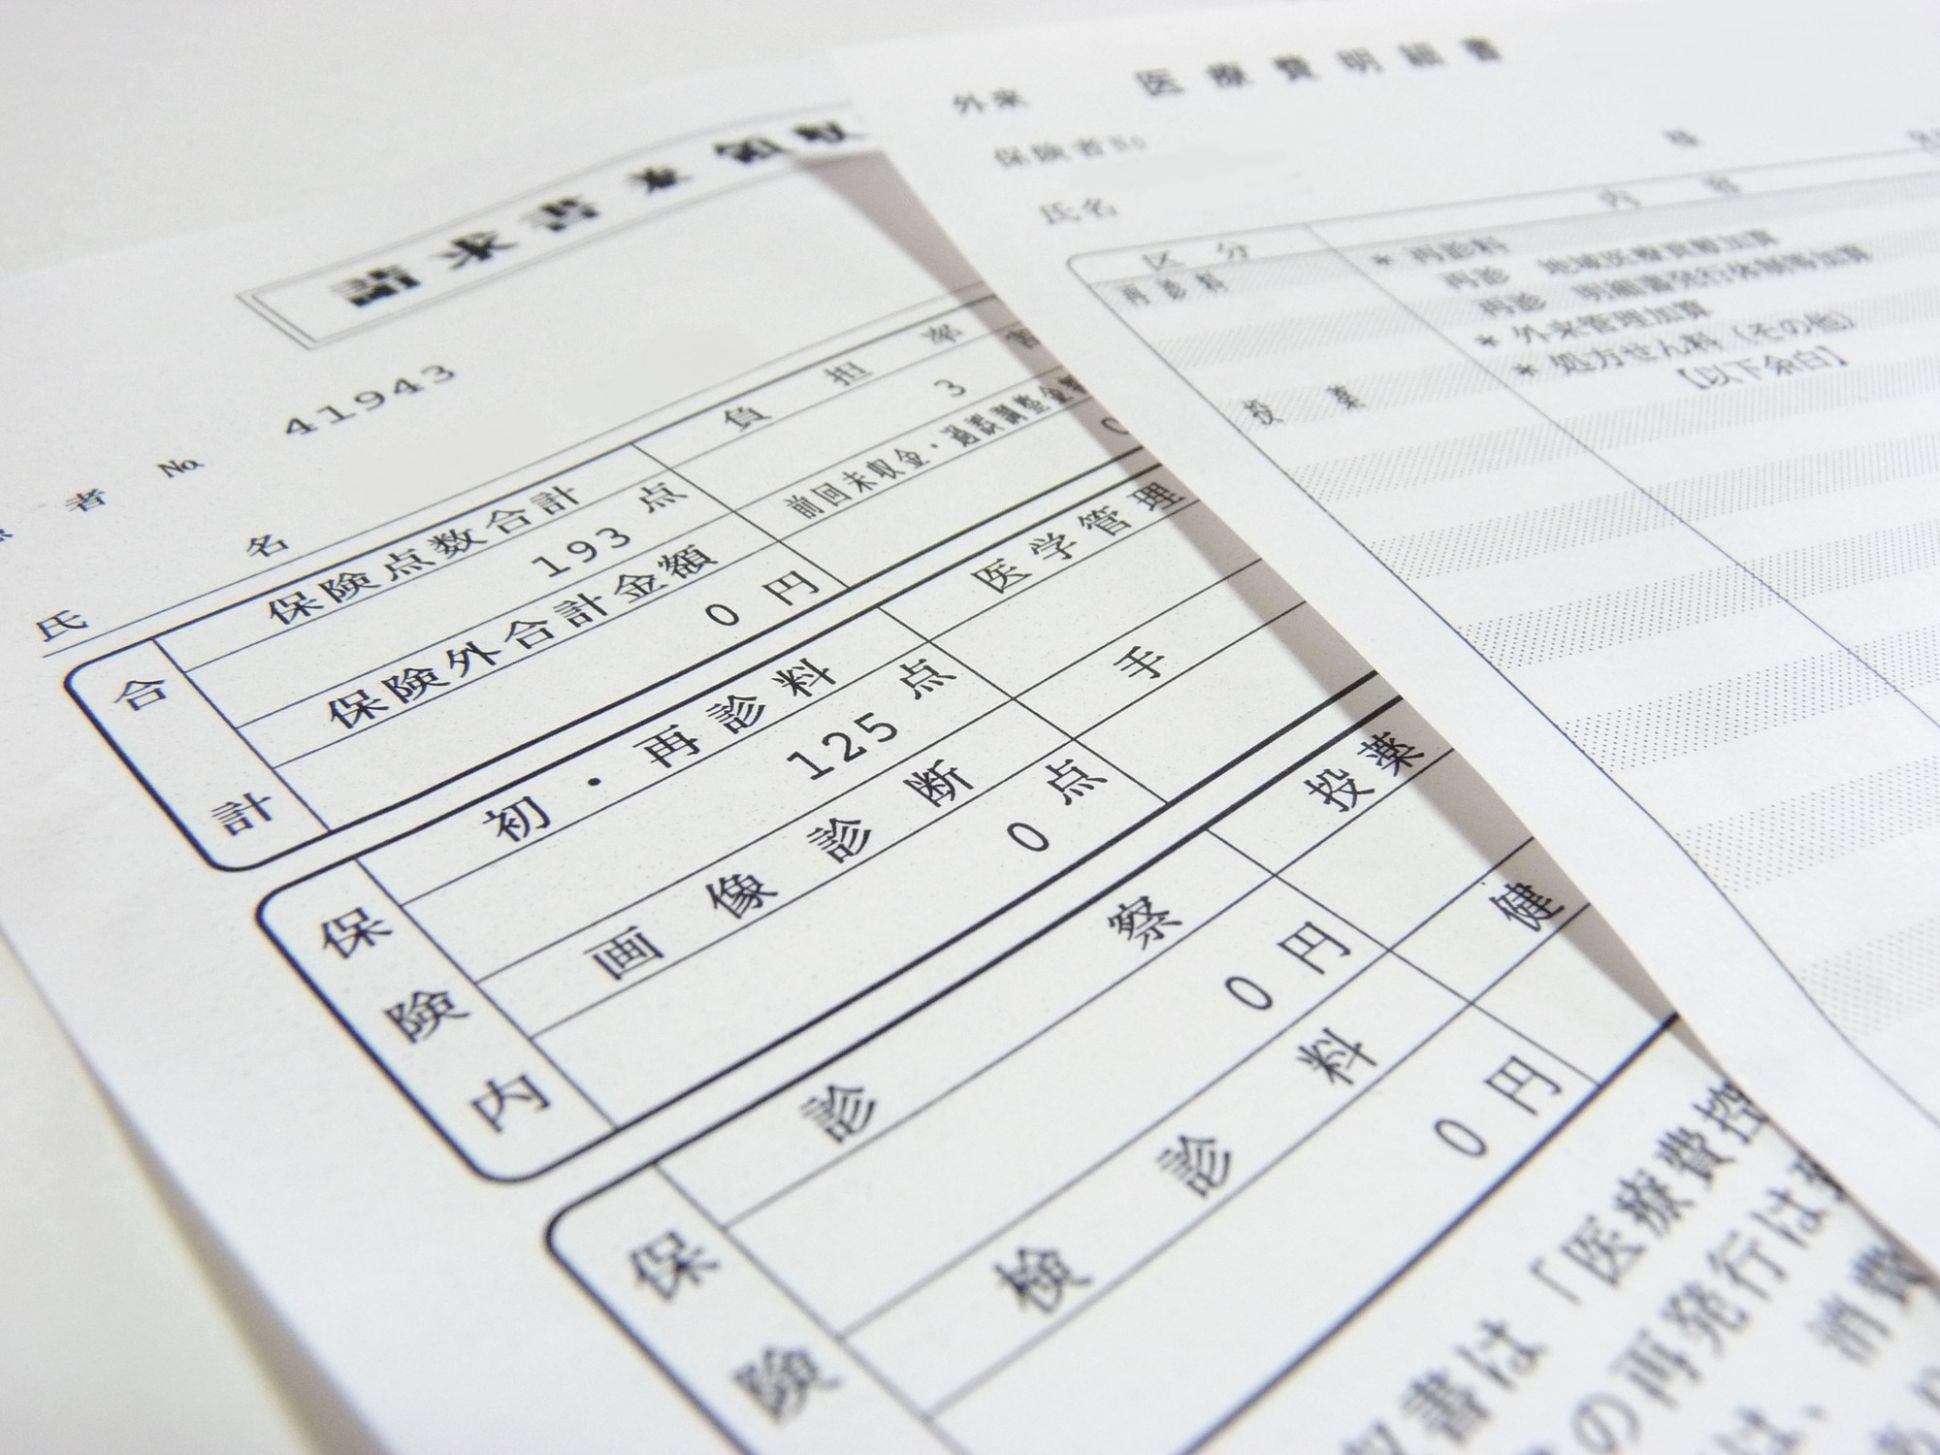 請求書兼領収
者 No. 41943
氏 名
合計
保険点数合計
193 点
負 担 率
3
保険外合計金額
0 円
前回未収金・過誤調整金額
0
保険内
初・再診料
125 点
医学管理
画像診断
0 点
手
保険
診 察
0 円
投薬
検 診 料
0 円
健
収書は「医療費控
の再発行は致
は、消費
外来 医療費明細書
保険者No
氏名 様
区 分 内 容
再診料 * 再診料
再診 地域医療貢献加算
再診 明細書発行体制等加算
* 外来管理加算
投 薬 * 処方せん料（その他）
【以下余白】